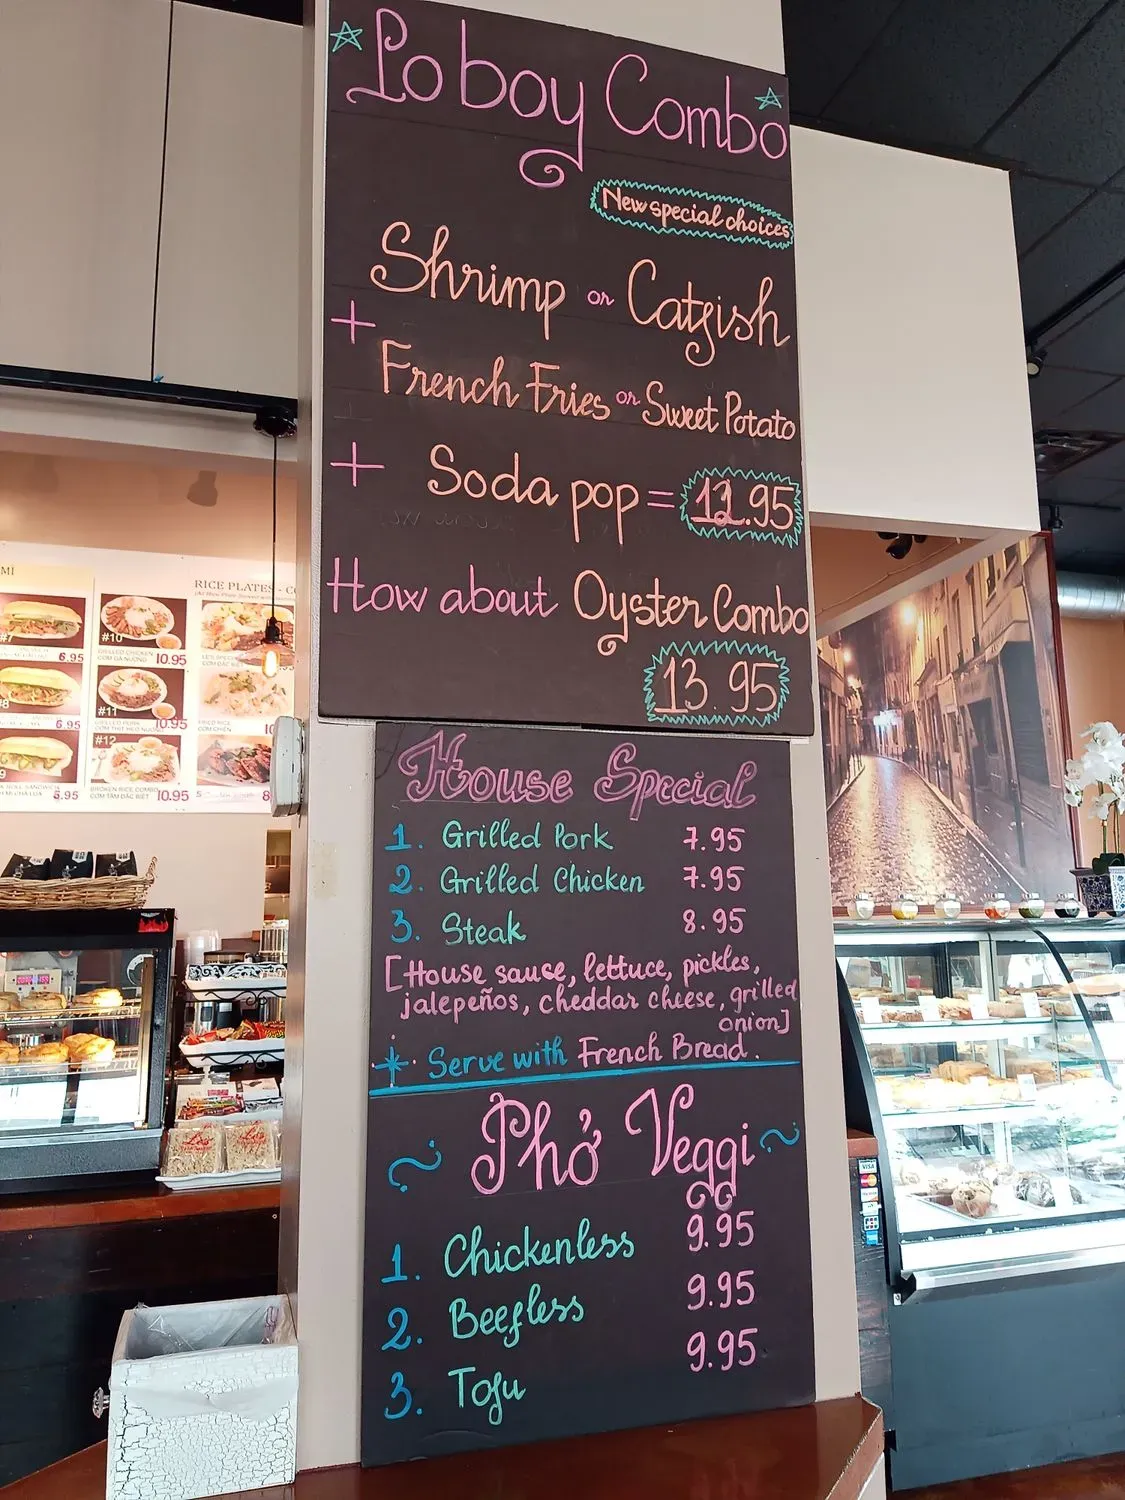 Po boy Combo
New special choices
Shrimp or Catfish
+
French Fries or Sweet Potato
+ Soda pop = 12.95
How about Oyster Combo
13.95
House Special
1. Grilled Pork 7.95
2. Grilled Chicken 7.95
3. Steak 8.95
[House sauce, lettuce, pickles,
jalepeños, cheddar cheese, grilled
onion]
Serve with French Bread.
Phở Veggi
1. Chickenless 9.95
2. Beefless 9.95
3. Tofu 9.95
MÌ
#7
6.95
#8
6.95
5.95
RICE PLATES - C
#10
GRILLED CHICKEN
CƠM GÀ NƯỚNG
10.95
#11
GRILLED PORK
CƠM THỊT HEO NƯỚNG
10.95
#12
BROKEN RICE COMBO
CƠM TẤM ĐẶC BIỆT
10.95
FRIED RICE
CƠM CHIÊN
VISA